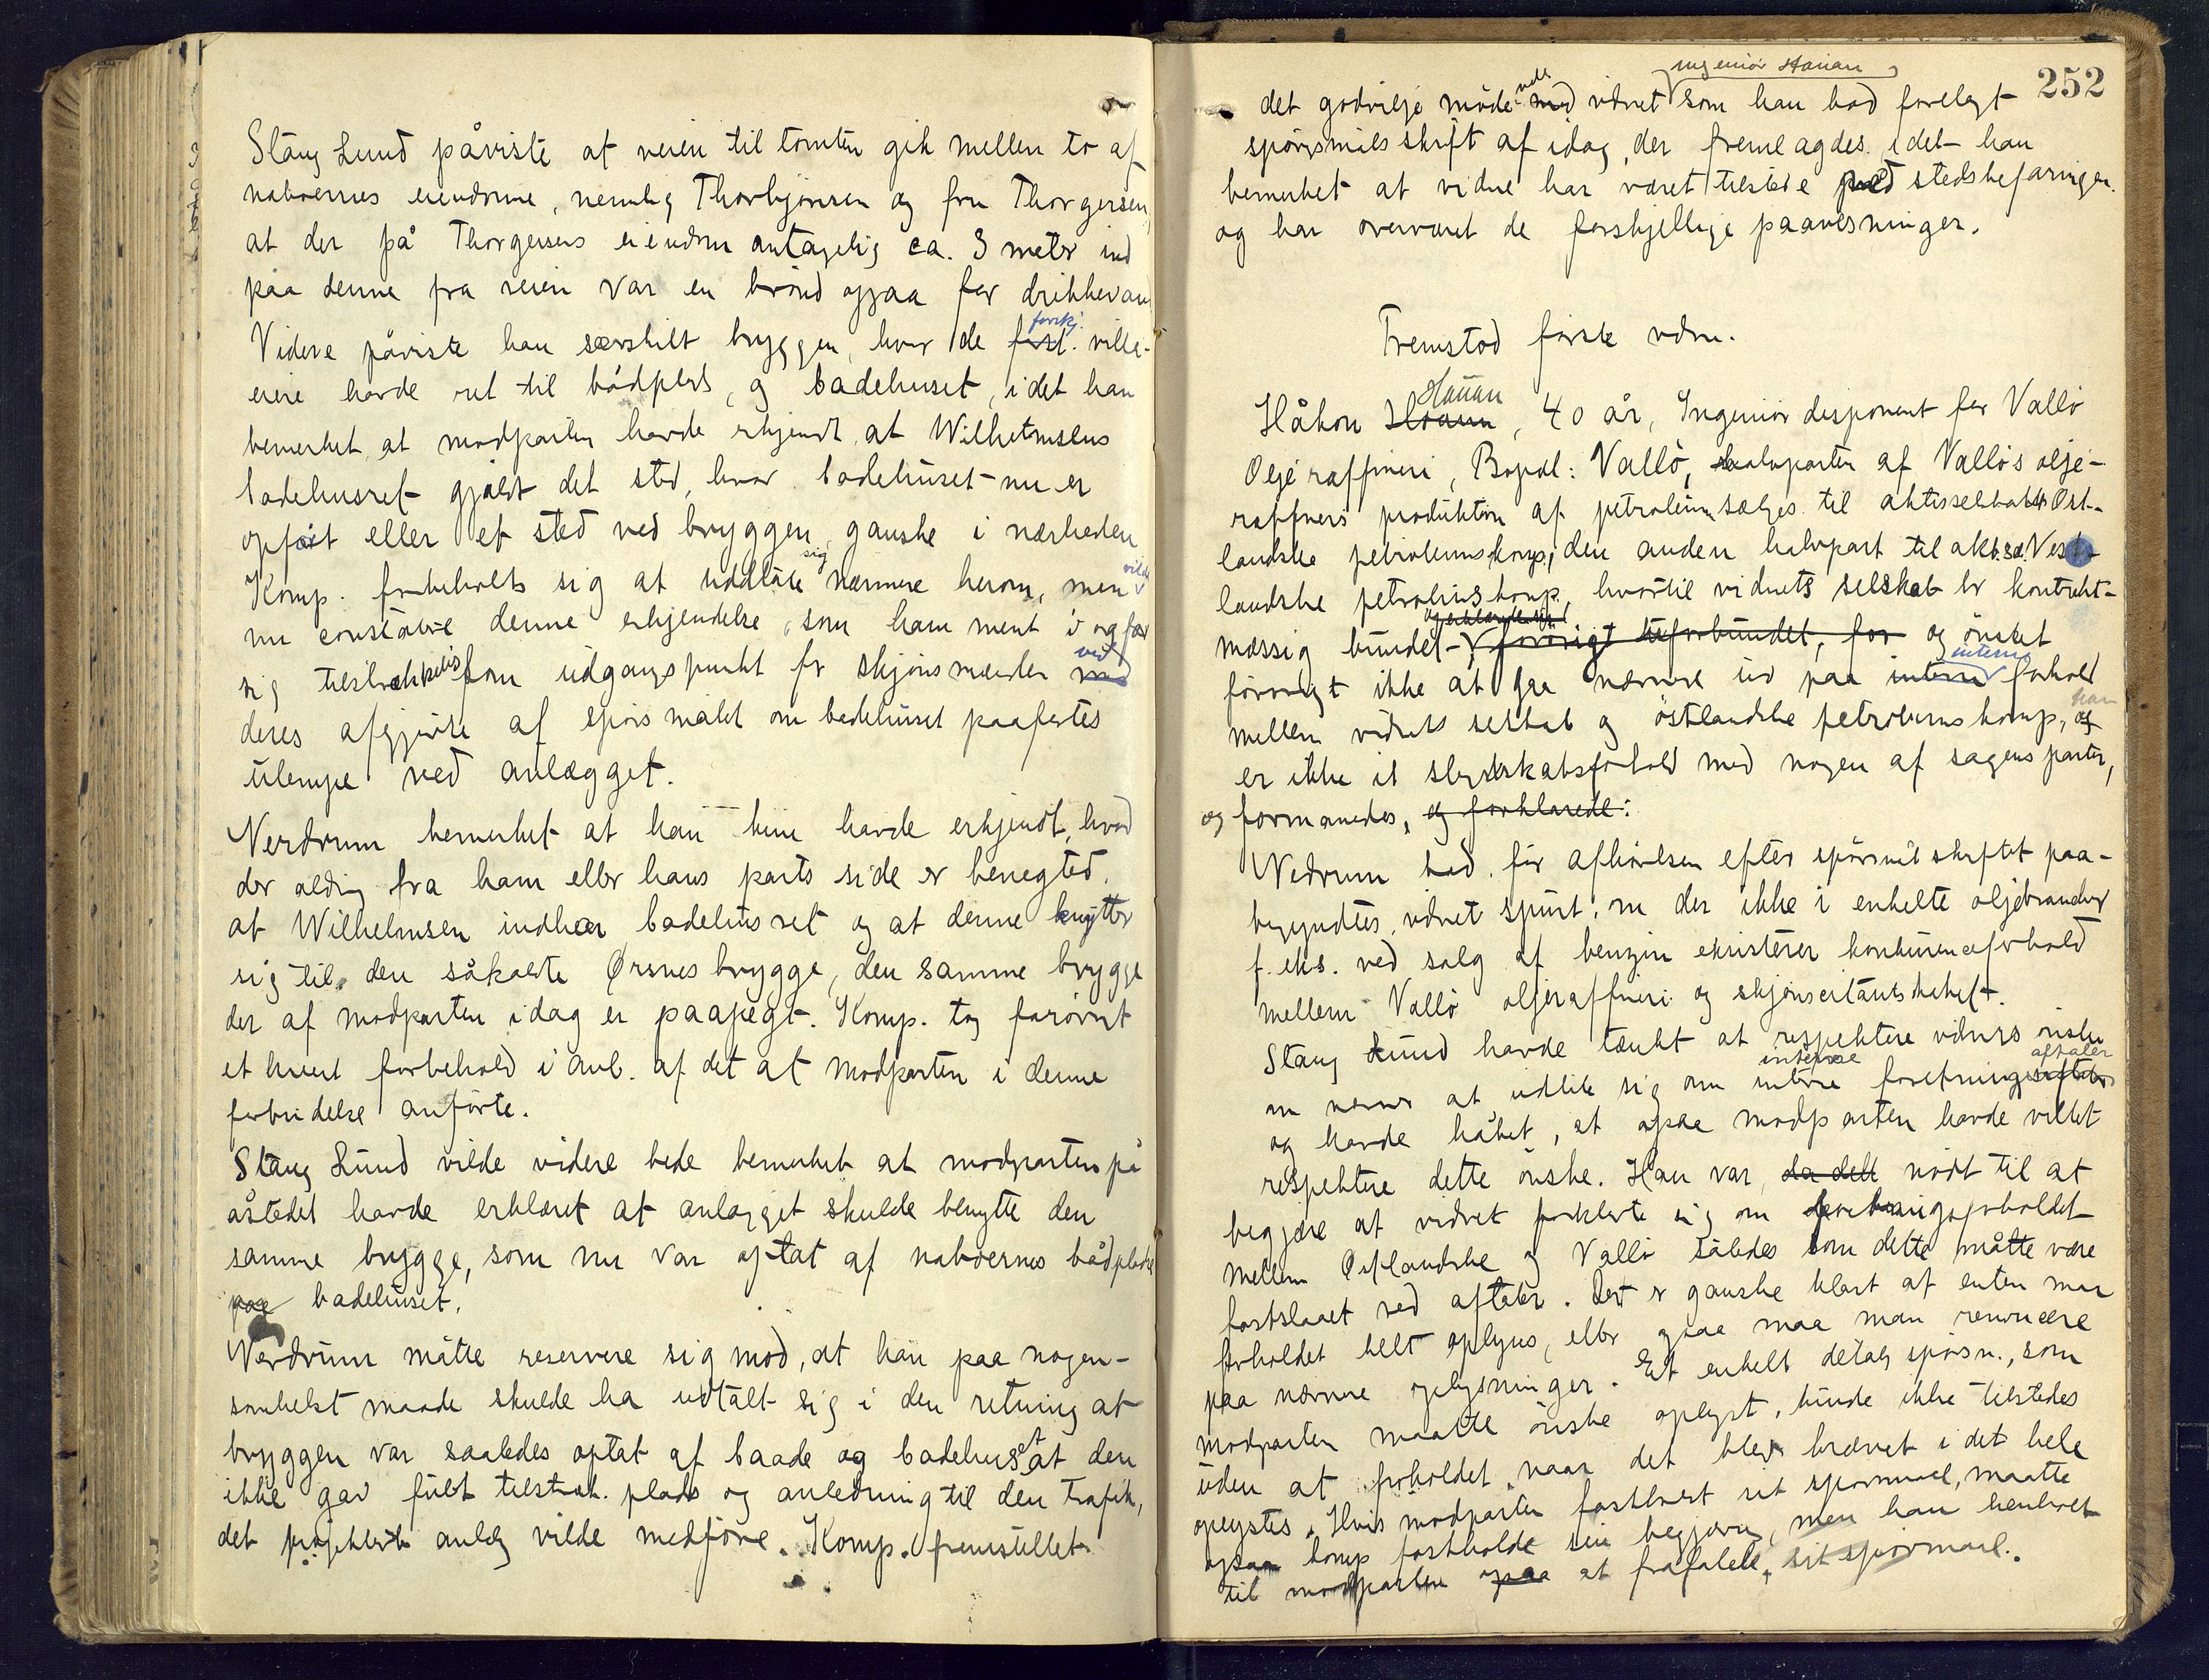 Stang Lund påviste at veien til tomten gik mellem to af
naboernes eiendomme, nemlig Thorbjørnsen og fru Thorgersen,
at der på Thorgersens eiendom antagelig ca. 3 meter ind
paa denne fra veien var en brønd ogsaa for drikkevan
Videre påviste han særskilt bryggen, hvor de forskj. villa-
eiere havde ret til bådplads, og badehuset, idet han
bemerket, at modparten havde erkjendt, at Wilhelmsens
badehusret gjaldt det sted, hvor badehuset nu er
opført eller et sted ved bryggen, ganske i nærheden
Komp. forbeholdt sig at uddtale sig nærmere herom, men vilde
nu constatere denne erkjendelse, som ham ment i og for
sig tilstrækkelig som udgangspunkt for skjønsmænden ved
deres afgjørelse af spørsmålet om badehuset paaførtes
ulempe ved anlægget.
Nerdrum bemerket at han kun havde erkjendt, hvad
der aldrig fra ham eller hans parts side er benegted,
at Wilhelmsen indhar badehusret og at denne knytter
sig til den såkaldte Ørsnes brygge, den samme brygge
der af modparten idag er paapegt. Komp. tog forøvrigt
ethvert forbehold i anl. af det at modparten i denne
forbindelse anførte.
Stang Lund vilde videre bede bemerket at modparten på
åstedet havde erklæret at anlægget skulde benytte den
samme brygge, som nu var optat af naboernes bådpladse
badehuset.
Nerdrum måtte reservere sig mod, at han paa nogen-
somhelst maade skulde ha udtalt sig i den retning at
bryggen var saaledes optat af baade og badehuset at den
ikke gav fuldt tilstræk. plads og anledning til den trafik,
det projekterte anlæg vilde medføre. Komp. fremstillet
252
ingeniør Hauan
det godvilje møde vidnet som han bad forelagt
spørgsmålsskrift af idag, der fremlagdes idet han
bemerket at vidne har været tilstede ved stedsbefaringen
og har overværet de forskjellige paavisninger.
Fremstod første vidne.
Håkon Hauan, 40 år, Ingeniør disponent for Vallø
Oljeraffineri, Bopæl: Vallø, halvparten af Valløs olje-
raffineris produktion af petroleum sælges til aktieselskabet Øst-
landske petroleumskomp, den anden halvpart til akt.se. Vest-
landske petroliumskomp, hvortil vidnets selskab er kontrakt-
mæssig bundet forøvrigt uforbundet, for og ønsket
forøvrigt ikke at gaa nærmere ind paa interne forhold
mellem vidnets selskab og østlandske petroleumskomp, han
er ikke i slegtskabsforhold med nogen af sagens parter,
og formanedes, og forklarede:
Nerdrum bad før afhørelsen efter spørsmålskriftet paa-
begyndtes, vidnet spurt, om der ikke i enkelte oljebrancher
f. eks. ved salg af benzin eksisterer konkurranceforhold
mellem Vallø oljeraffineri og skjønscitantskabet.
Stang Lund havde tænkt at respektere vidnets ønske
om nærmere at udtale sig om interne forretningsaftaler
og havde håbet, at ogsaa modparten havde villet
respektere dette ønske. Han var da dett nødt til at
begjære at vidnet forklarte sig om forretningsforholdet
mellem Østlandske og Vallø således som dette måtte være
fastslaaet ved aftaler. Det er ganske klart at enten maa
forholdet helt oplyses, eller ogsaa maa man renoncere
paa nærmere oplysninger. Et enkelt detalj spørsm., som
modparten maatte ønske oplyst, kunde ikke tilstedes
uden at forholdet, naar det blev krævet i det hele
oplystes. Hvis modparten fastholdt sit spørsmaal, maatte
ogsaa komp fastholde sin begjæring, men han henholdt
til modparten ogsaa at frafalde sit spørsmaal.